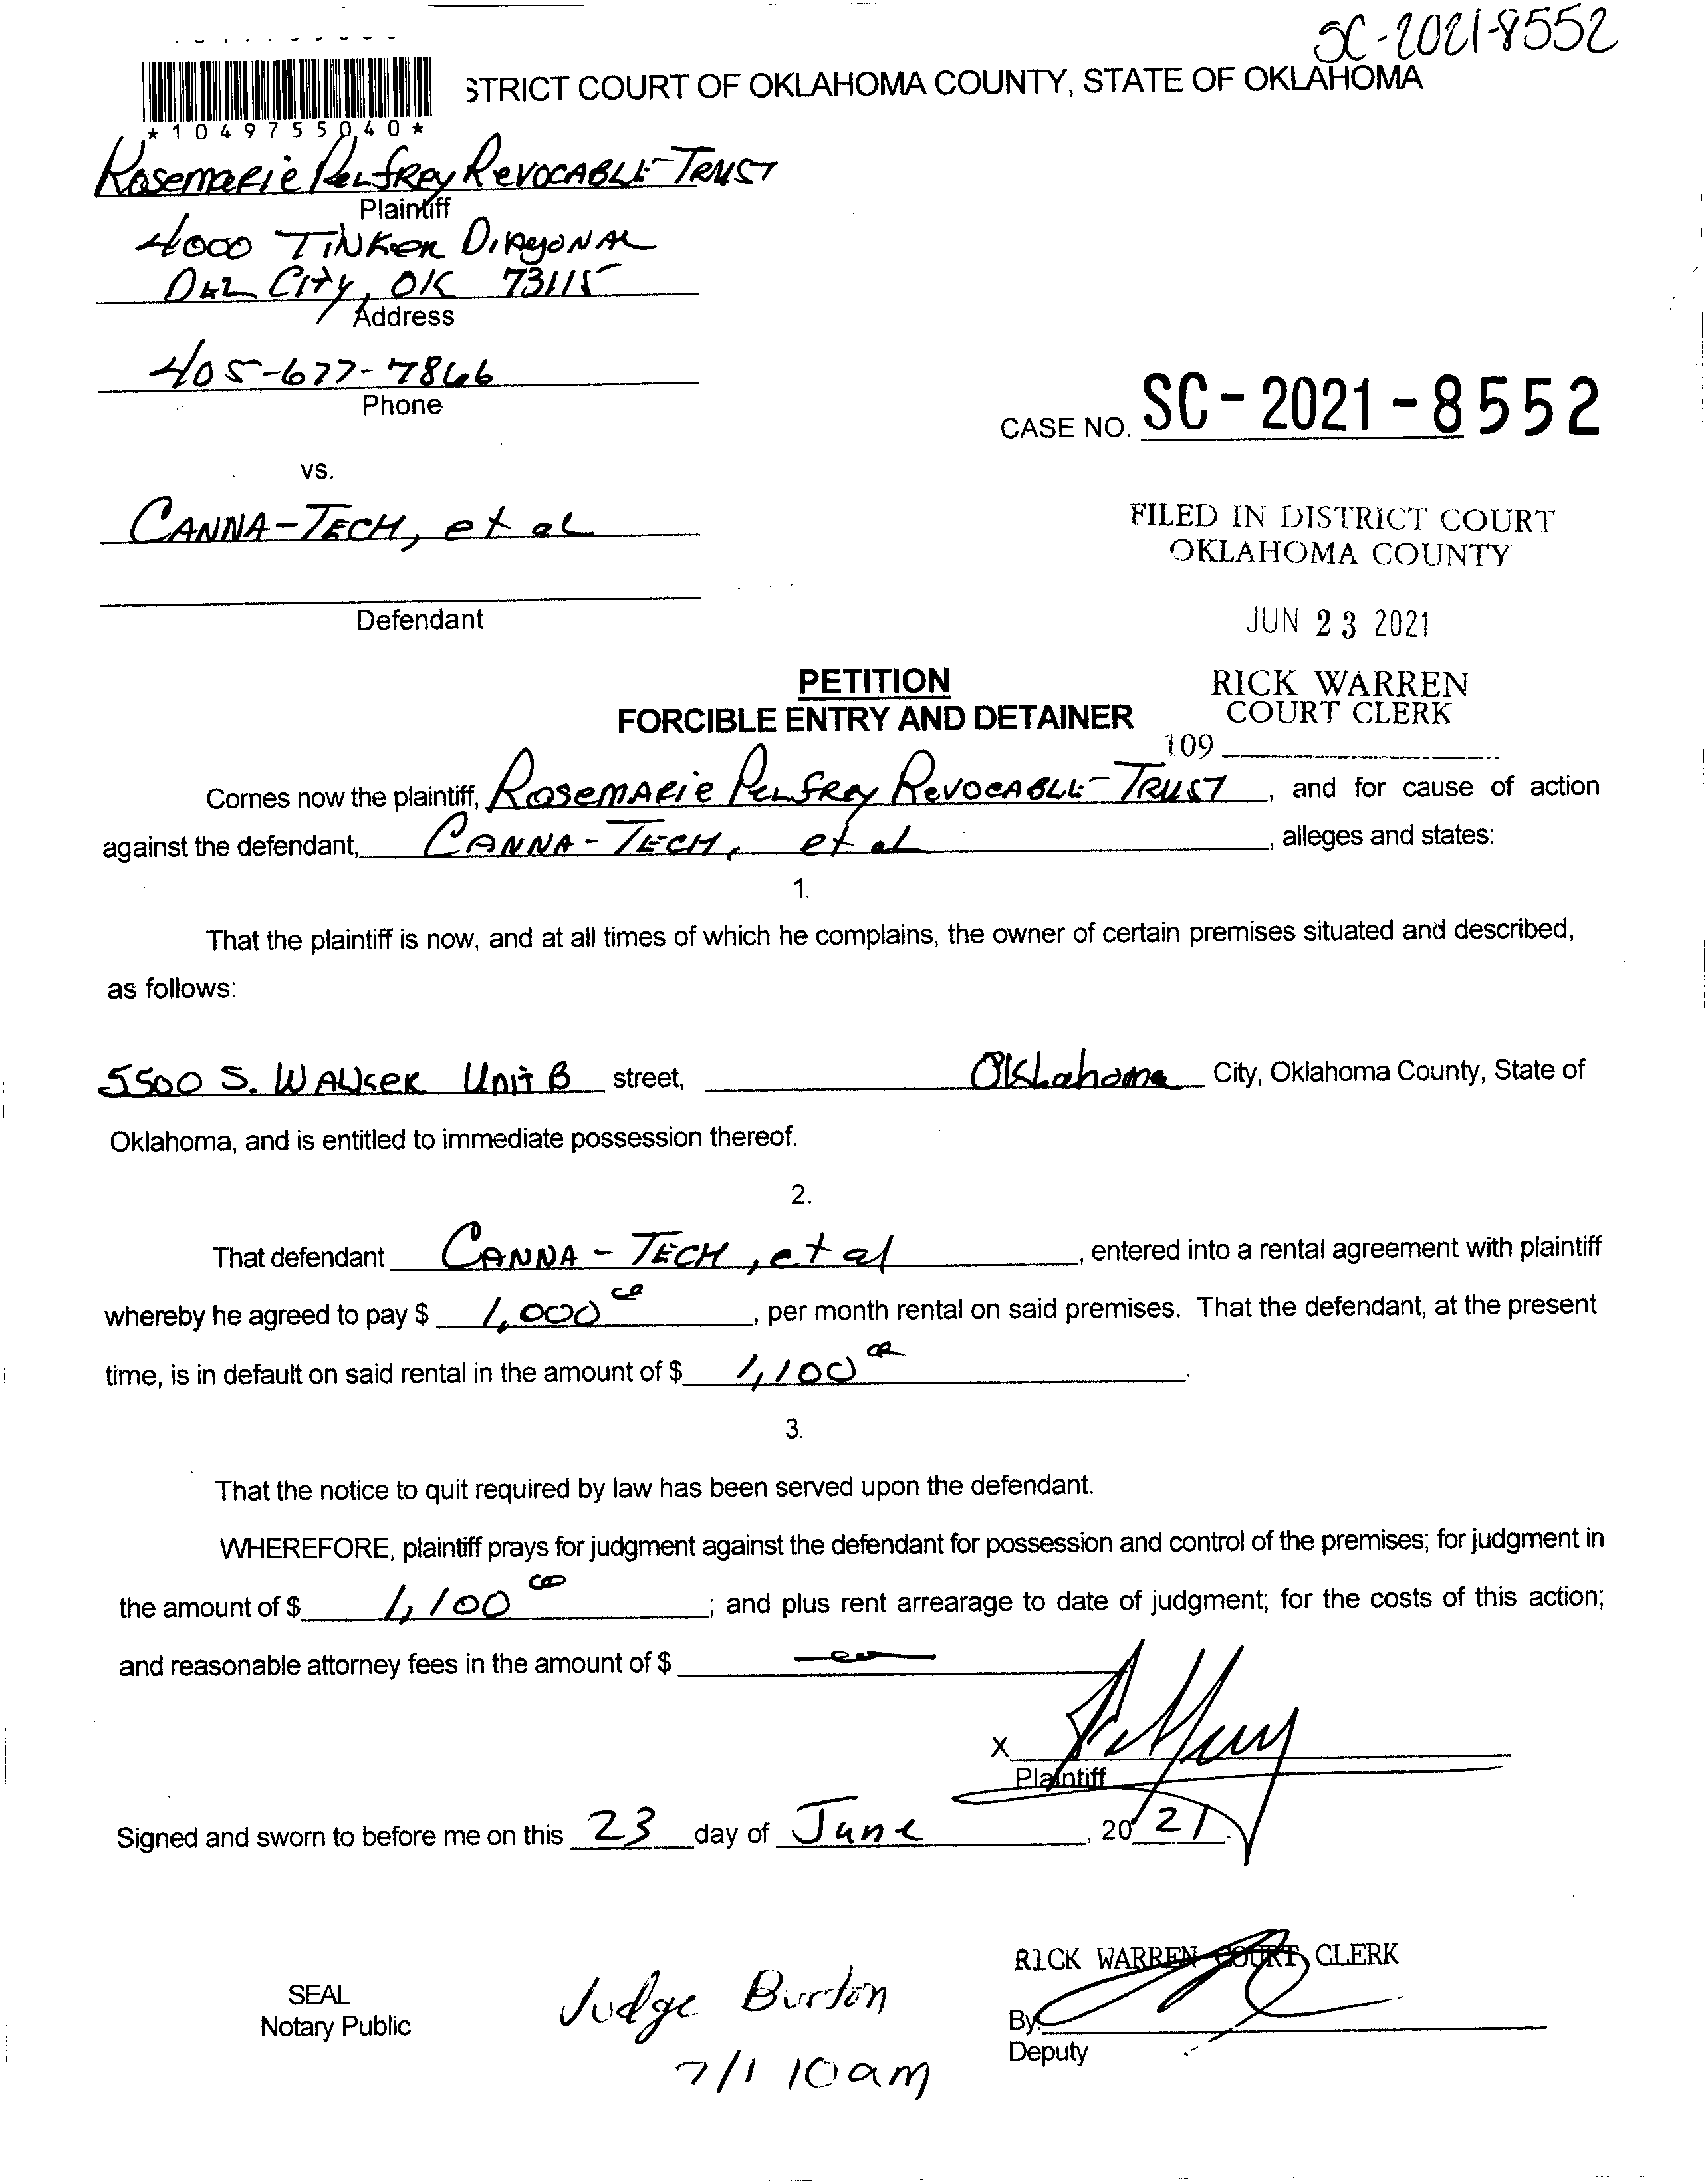 SC-2021-8552
STRICT COURT OF OKLAHOMA COUNTY, STATE OF OKLAHOMA
*1049755040*
Rosemarie Pelfrey Revocable Trust
Plaintiff
4000 Tinker Diagonal
Del City, OK 73115
Address
405-677-7866
Phone
CASE NO. SC-2021-8552
vs.
CANNA-TECH, et al
FILED IN DISTRICT COURT
OKLAHOMA COUNTY
Defendant
JUN 23 2021
PETITION
RICK WARREN
FORCIBLE ENTRY AND DETAINER
COURT CLERK
109
Comes now the plaintiff, Rosemarie Pelfrey Revocable Trust, and for cause of action
against the defendant, CANNA-TECH, et al, alleges and states:
1.
That the plaintiff is now, and at all times of which he complains, the owner of certain premises situated and described,
as follows:
5500 S. Walker Unit B street, Oklahoma City, Oklahoma County, State of
Oklahoma, and is entitled to immediate possession thereof.
2.
That defendant CANNA-TECH, et al, entered into a rental agreement with plaintiff
whereby he agreed to pay $ 1,000 00, per month rental on said premises. That the defendant, at the present
time, is in default on said rental in the amount of $ 1,100 00.
3.
That the notice to quit required by law has been served upon the defendant.
WHEREFORE, plaintiff prays for judgment against the defendant for possession and control of the premises; for judgment in
the amount of $ 1,100 00; and plus rent arrearage to date of judgment; for the costs of this action;
and reasonable attorney fees in the amount of $
X
Plaintiff
Signed and sworn to before me on this 23 day of June, 20 21.
RICK WARREN COURT CLERK
SEAL
Notary Public
Judge Burton
By:
Deputy
7/1 10am